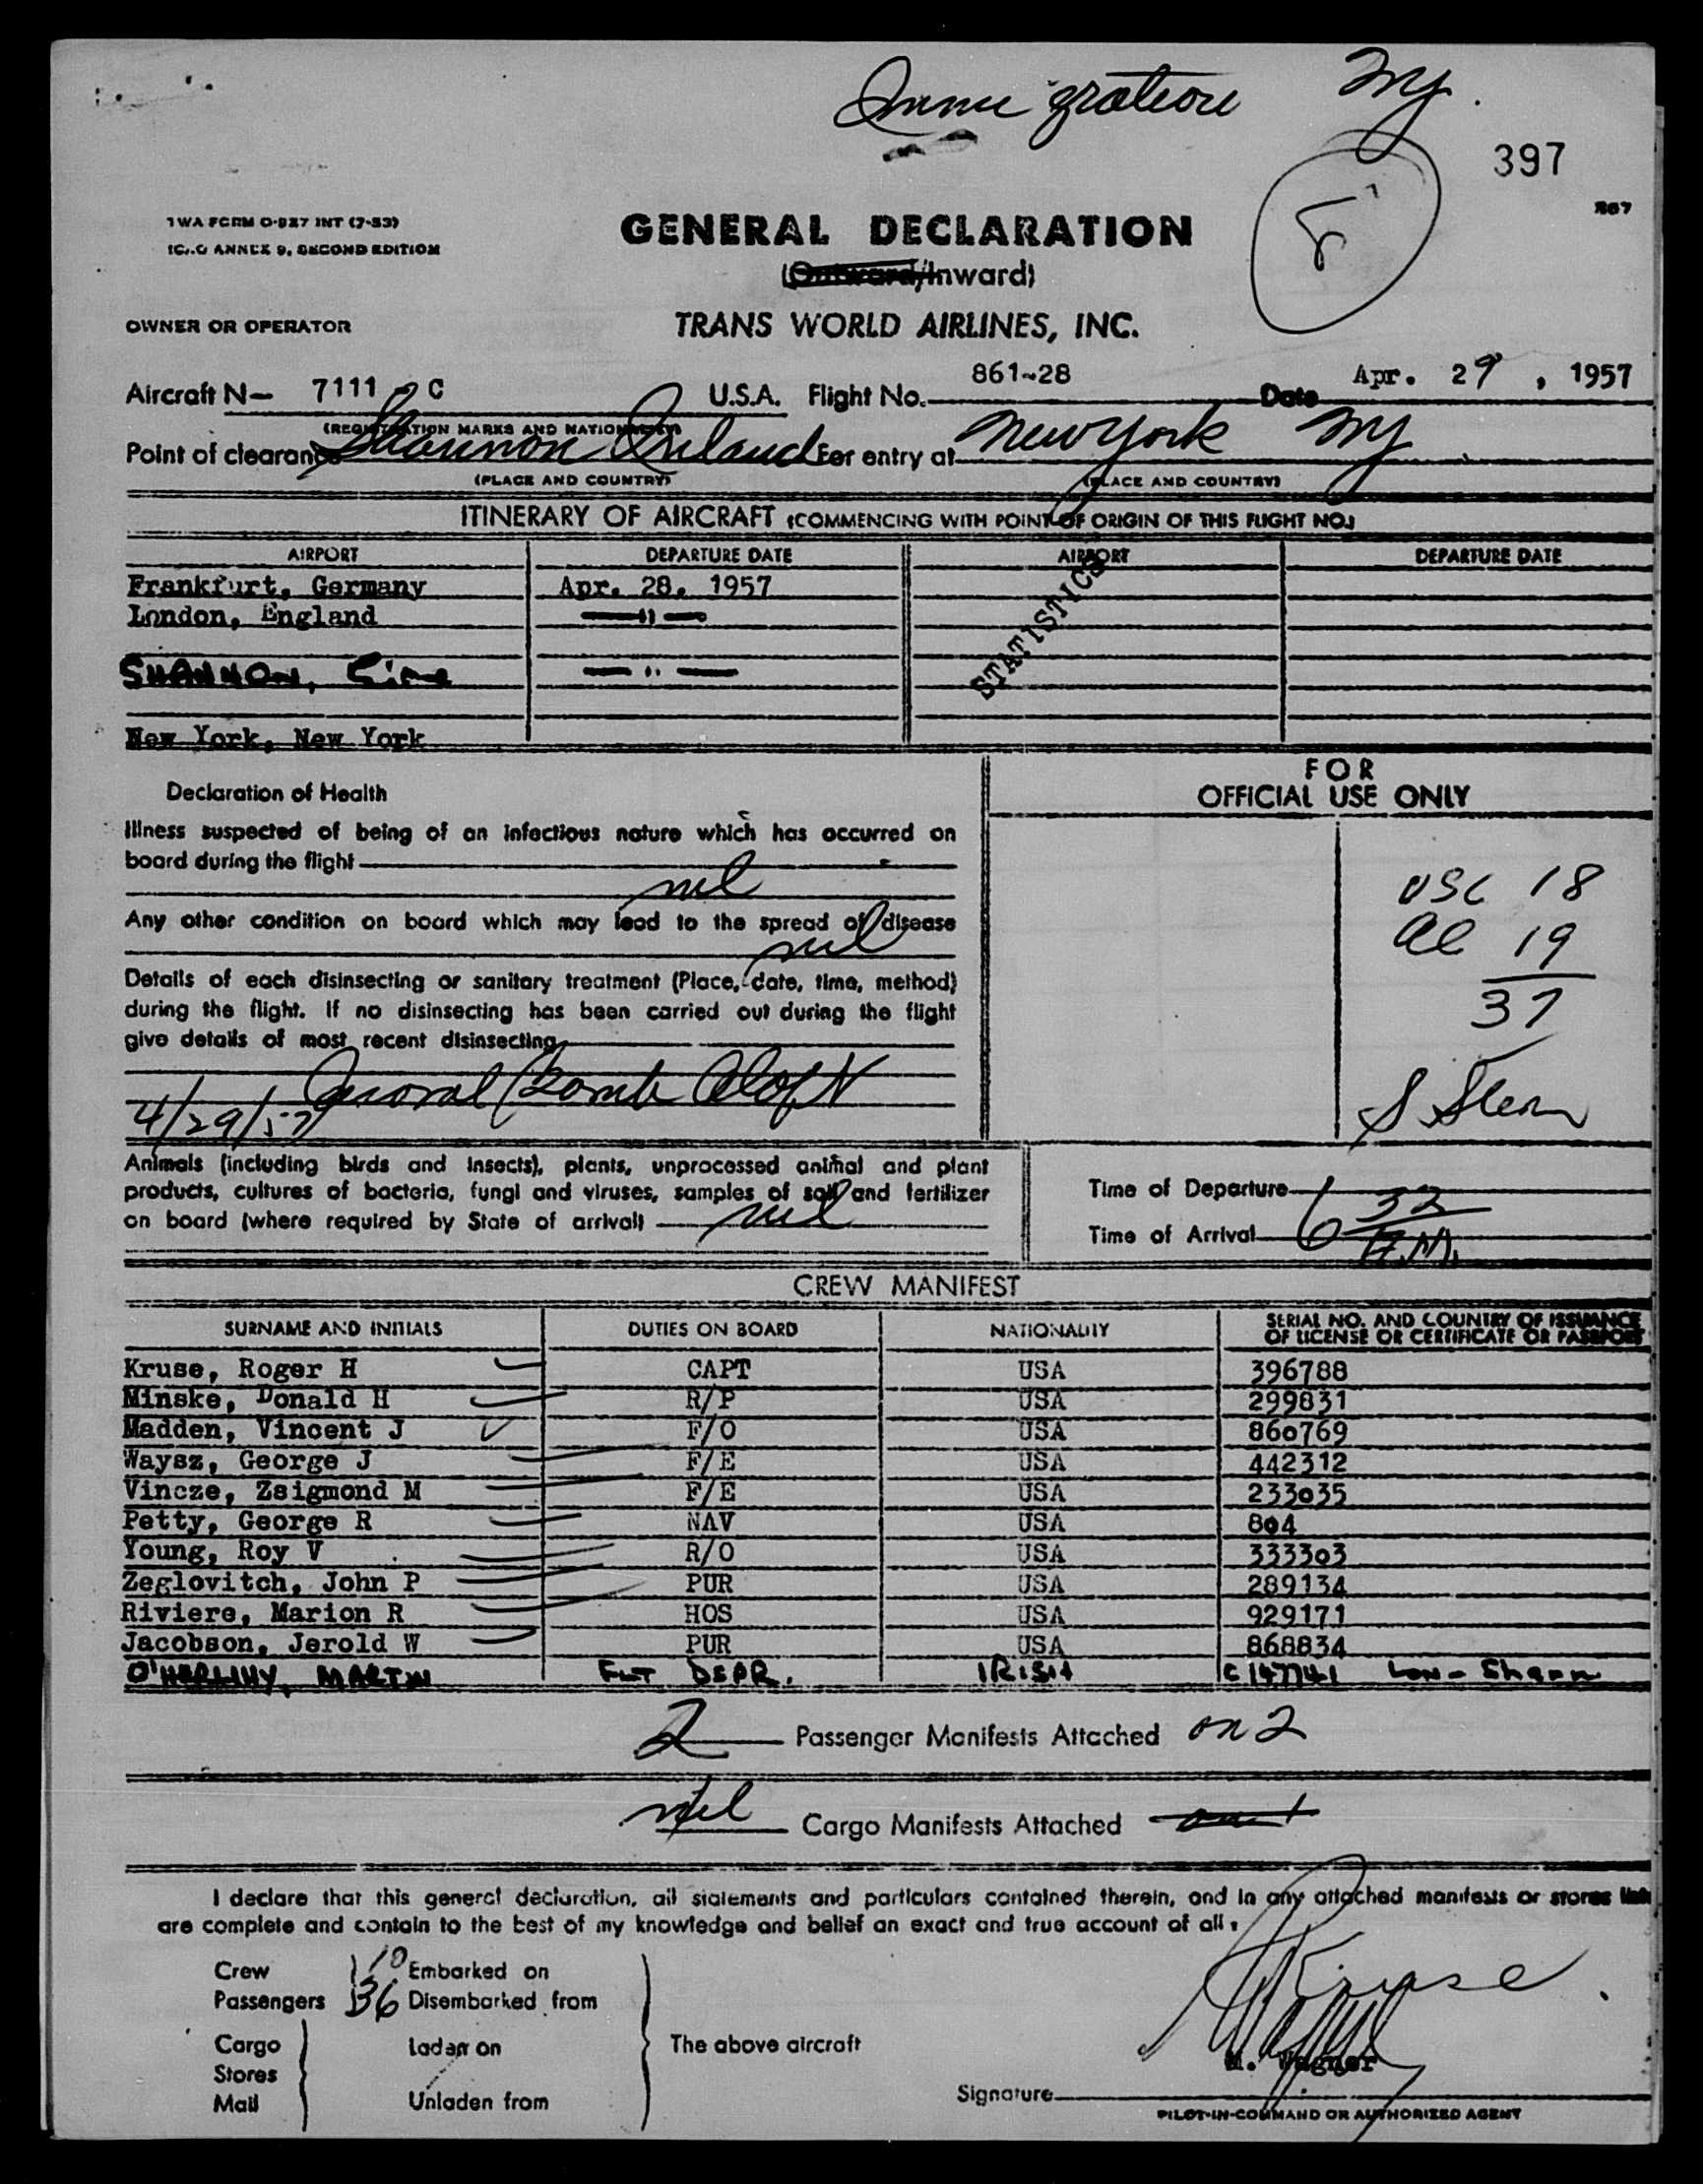 Immigration NY.
397
TWA FORM O-827 INT (7-53)
ICAO ANNEX 9, SECOND EDITION
GENERAL DECLARATION
(Outward/Inward)
OWNER OR OPERATOR
TRANS WORLD AIRLINES, INC.
Aircraft N- 7111 C U.S.A. Flight No. 861-28 Date Apr. 29, 1957
(REGISTRATION MARKS AND NATIONALITY)
Point of clearance Shannon Ireland For entry at New York NY
(PLACE AND COUNTRY) (PLACE AND COUNTRY)
ITINERARY OF AIRCRAFT (COMMENCING WITH POINT OF ORIGIN OF THIS FLIGHT NO.)
AIRPORT DEPARTURE DATE AIRPORT DEPARTURE DATE
Frankfurt, Germany Apr. 28, 1957
London, England — " —
SHANNON, Eire — " —
STATISTICS
New York, New York
FOR
OFFICIAL USE ONLY
Declaration of Health
Illness suspected of being of an infectious nature which has occurred on
board during the flight
nil
Any other condition on board which may lead to the spread of disease
nil
Details of each disinsecting or sanitary treatment (Place, date, time, method)
during the flight. If no disinsecting has been carried out during the flight
give details of most recent disinsecting
4/29/57 Bomb Aloft
USC 18
al 19
37
S Stern
Animals (including birds and insects), plants, unprocessed animal and plant
products, cultures of bacteria, fungi and viruses, samples of soil and fertilizer
on board (where required by State of arrival) nil
Time of Departure
Time of Arrival 6 32 A.M.
CREW MANIFEST
SURNAME AND INITIALS DUTIES ON BOARD NATIONALITY SERIAL NO. AND COUNTRY OF ISSUANCE
OF LICENSE OR CERTIFICATE OR PASSPORT
Kruse, Roger H CAPT USA 396788
Minske, Donald H R/P USA 299831
Madden, Vincent J F/O USA 860769
Waysz, George J F/E USA 442312
Vincze, Zsigmond M F/E USA 233035
Petty, George R NAV USA 804
Young, Roy V R/O USA 333303
Zeglovitch, John P PUR USA 289134
Riviere, Marion R HOS USA 929171
Jacobson, Jerold W PUR USA 868834
O'HERLIHY, MARTIN FLT DSPR. IRISH C147741 LON - Shann
2 Passenger Manifests Attached on 2
nil Cargo Manifests Attached
I declare that this general declaration, all statements and particulars contained therein, and in any attached manifests or stores list
are complete and contain to the best of my knowledge and belief an exact and true account of all:
Crew 10 Embarked on
Passengers 36 Disembarked from
Cargo Laden on The above aircraft
Stores
Mail Unladen from
Kruse
M. Wagner
Signature
PILOT-IN-COMMAND OR AUTHORIZED AGENT